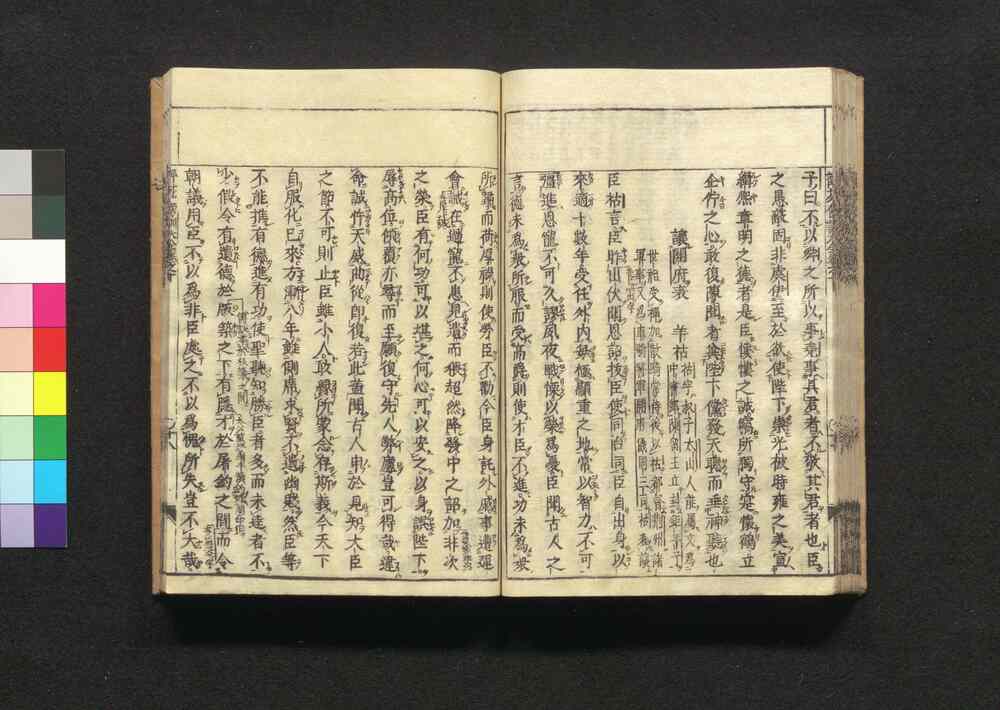 子曰不以舜之所以事堯事其君者不敬其君者也臣
之愚蔽固非虞使至於欲使陛下崇光被時雍之美宣
緝熙章明之德者是臣慺慺之誠竊所獨守寔懷鶴立
企佇之心敢復陳聞者冀陛下儻發天聰而垂神聽也
讓開府表　羊祜
臣祜言臣昨出伏聞恩詔拔臣使同台司臣自出身以
來適十數年受任外内每極顯重之地常以智力不可
彊進恩寵不可久謬夙夜戰慄以榮爲憂臣聞古人之
言德未爲衆所服而受高爵則使才臣不進功未爲衆
所歸而荷厚祿則使勞臣不勸今臣身託外戚事遭運
會誠在過寵不患見遺而猥超然降發中之詔加非次
之榮臣有何功可以堪之何心可以安之以身誤陛下
辱高位傾覆亦尋而至願復守先人弊廬豈可得哉違
命誠忤天威曲從即復若此蓋聞古人申於見知大臣
之節不可則止臣雖小人敢緣所蒙念存斯義今天下
自服化已來方漸八年雖側席求賢不遺幽賤然臣等
不能推有德進有功使聖聽知勝臣者多而未達者不
少假令有遺德於版築之下有隱才於屠釣之間而令
朝議用臣不以爲非臣處之不以爲愧所失豈不大哉